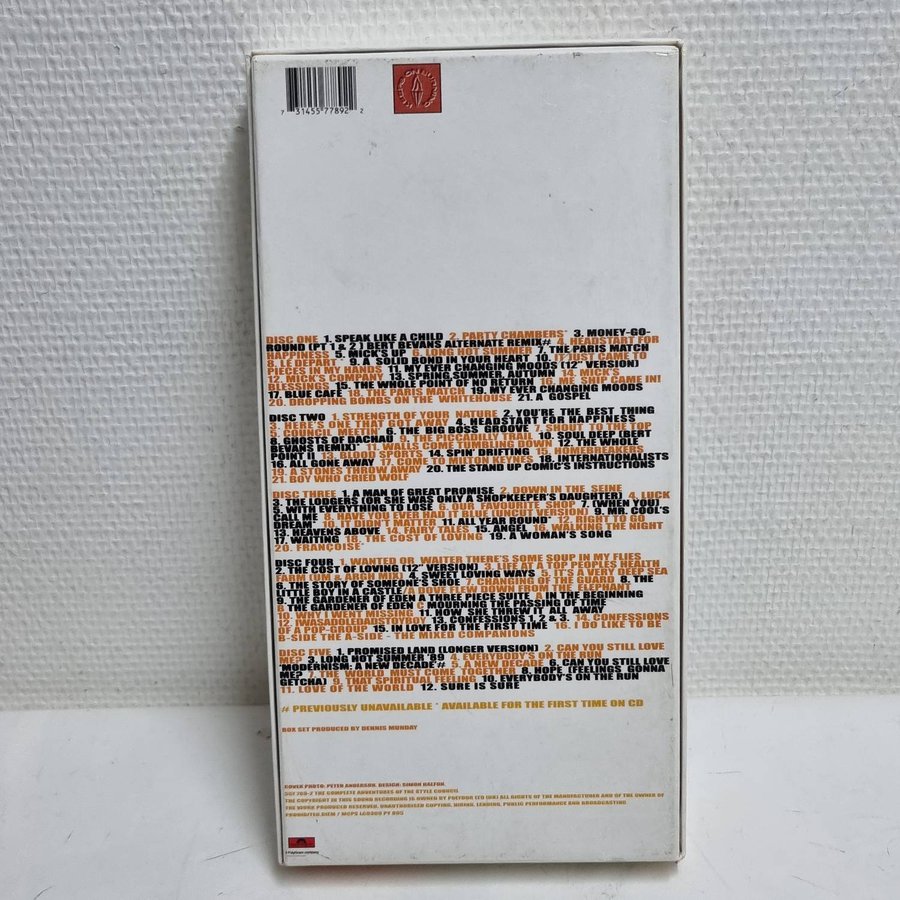 7 31455 77892 2
KEEPS ON BURNING
DISC ONE 1. SPEAK LIKE A CHILD 2. PARTY CHAMBERS* 3. MONEY-GO-
ROUND (PT 1 & 2 ) BERT BEVANS ALTERNATE REMIX# 4. HEADSTART FOR
HAPPINESS 5. MICK'S UP 6. LONG HOT SUMMER 7. THE PARIS MATCH
8. LE DEPART 9. A SOLID BOND IN YOUR HEART 10. IT JUST CAME TO
PIECES IN MY HANDS 11. MY EVER CHANGING MOODS (12" VERSION)
12. MICK'S COMPANY 13. SPRING, SUMMER, AUTUMN 14. MICK'S
BLESSINGS 15. THE WHOLE POINT OF NO RETURN 16. ME SHIP CAME IN!
17. BLUE CAFÉ 18. THE PARIS MATCH 19. MY EVER CHANGING MOODS
20. DROPPING BOMBS ON THE WHITEHOUSE 21. A GOSPEL
DISC TWO 1. STRENGTH OF YOUR NATURE 2. YOU'RE THE BEST THING
3. HERE'S ONE THAT GOT AWAY 4. HEADSTART FOR HAPPINESS
5. COUNCIL MEETIN' 6. THE BIG BOSS GROOVE 7. SHOUT TO THE TOP
8. GHOSTS OF DACHAU 9. THE PICCADILLY TRAIL 10. SOUL DEEP (BERT
BEVANS REMIX)* 11. WALLS COME TUMBLING DOWN 12. THE WHOLE
POINT II 13. BLOOD SPORTS 14. SPIN' DRIFTING 15. HOMEBREAKERS
16. ALL GONE AWAY 17. COME TO MILTON KEYNES 18. INTERNATIONALISTS
19. A STONES THROW AWAY 20. THE STAND UP COMIC'S INSTRUCTIONS
21. BOY WHO CRIED WOLF
DISC THREE 1. A MAN OF GREAT PROMISE 2. DOWN IN THE SEINE
3. THE LODGERS (OR SHE WAS ONLY A SHOPKEEPER'S DAUGHTER) 4. LUCK
5. WITH EVERYTHING TO LOSE 6. OUR FAVOURITE SHOP 7. (WHEN YOU)
CALL ME 8. HAVE YOU EVER HAD IT BLUE (UNCUT VERSION) 9. MR. COOL'S
DREAM 10. IT DIDN'T MATTER 11. ALL YEAR ROUND 12. RIGHT TO GO
13. HEAVENS ABOVE 14. FAIRY TALES 15. ANGEL 16. WALKING THE NIGHT
17. WAITING 18. THE COST OF LOVING 19. A WOMAN'S SONG
20. FRANÇOISE*
DISC FOUR 1. WANTED OR WAITER THERE'S SOME SOUP IN MY FLIES
2. THE COST OF LOVING (12" VERSION) 3. LIFE AT A TOP PEOPLES HEALTH
FARM (UM & ARGH MIX) 4. SWEET LOVING WAYS 5. IT'S A VERY DEEP SEA
6. THE STORY OF SOMEONE'S SHOE 7. CHANGING OF THE GUARD 8. THE
LITTLE BOY IN A CASTLE/A DOVE FLEW DOWN FROM THE ELEPHANT
9. THE GARDENER OF EDEN A THREE PIECE SUITE A IN THE BEGINNING
B THE GARDENER OF EDEN C MOURNING THE PASSING OF TIME
10. WHY I WENT MISSING 11. HOW SHE THREW IT ALL AWAY
12. IWASADOLEDADSTOYBOY 13. CONFESSIONS 1, 2 & 3. 14. CONFESSIONS
OF A POP-GROUP 15. IN LOVE FOR THE FIRST TIME 16. I DO LIKE TO BE
B-SIDE THE A-SIDE - THE MIXED COMPANIONS
DISC FIVE 1. PROMISED LAND (LONGER VERSION) 2. CAN YOU STILL LOVE
ME? 3. LONG HOT SUMMER '89 4. EVERYBODY'S ON THE RUN
'MODERNISM: A NEW DECADE'# 5. A NEW DECADE 6. CAN YOU STILL LOVE
ME? 7. THE WORLD MUST COME TOGETHER 8. HOPE (FEELINGS GONNA
GETCHA) 9. THAT SPIRITUAL FEELING 10. EVERYBODY'S ON THE RUN
11. LOVE OF THE WORLD 12. SURE IS SURE
# PREVIOUSLY UNAVAILABLE * AVAILABLE FOR THE FIRST TIME ON CD
BOX SET PRODUCED BY DENNIS MUNDAY
COVER PHOTO: PETER ANDERSON. DESIGN: SIMON HALFON.
557 789-2 THE COMPLETE ADVENTURES OF THE STYLE COUNCIL
THE COPYRIGHT IN THIS SOUND RECORDING IS OWNED BY POLYDOR LTD (UK) ALL RIGHTS OF THE MANUFACTURER AND OF THE OWNER OF
THE WORK PRODUCED RESERVED. UNAUTHORISED COPYING, HIRING, LENDING, PUBLIC PERFORMANCE AND BROADCASTING
PROHIBITED. BIEM / MCPS LC0309 PY 895